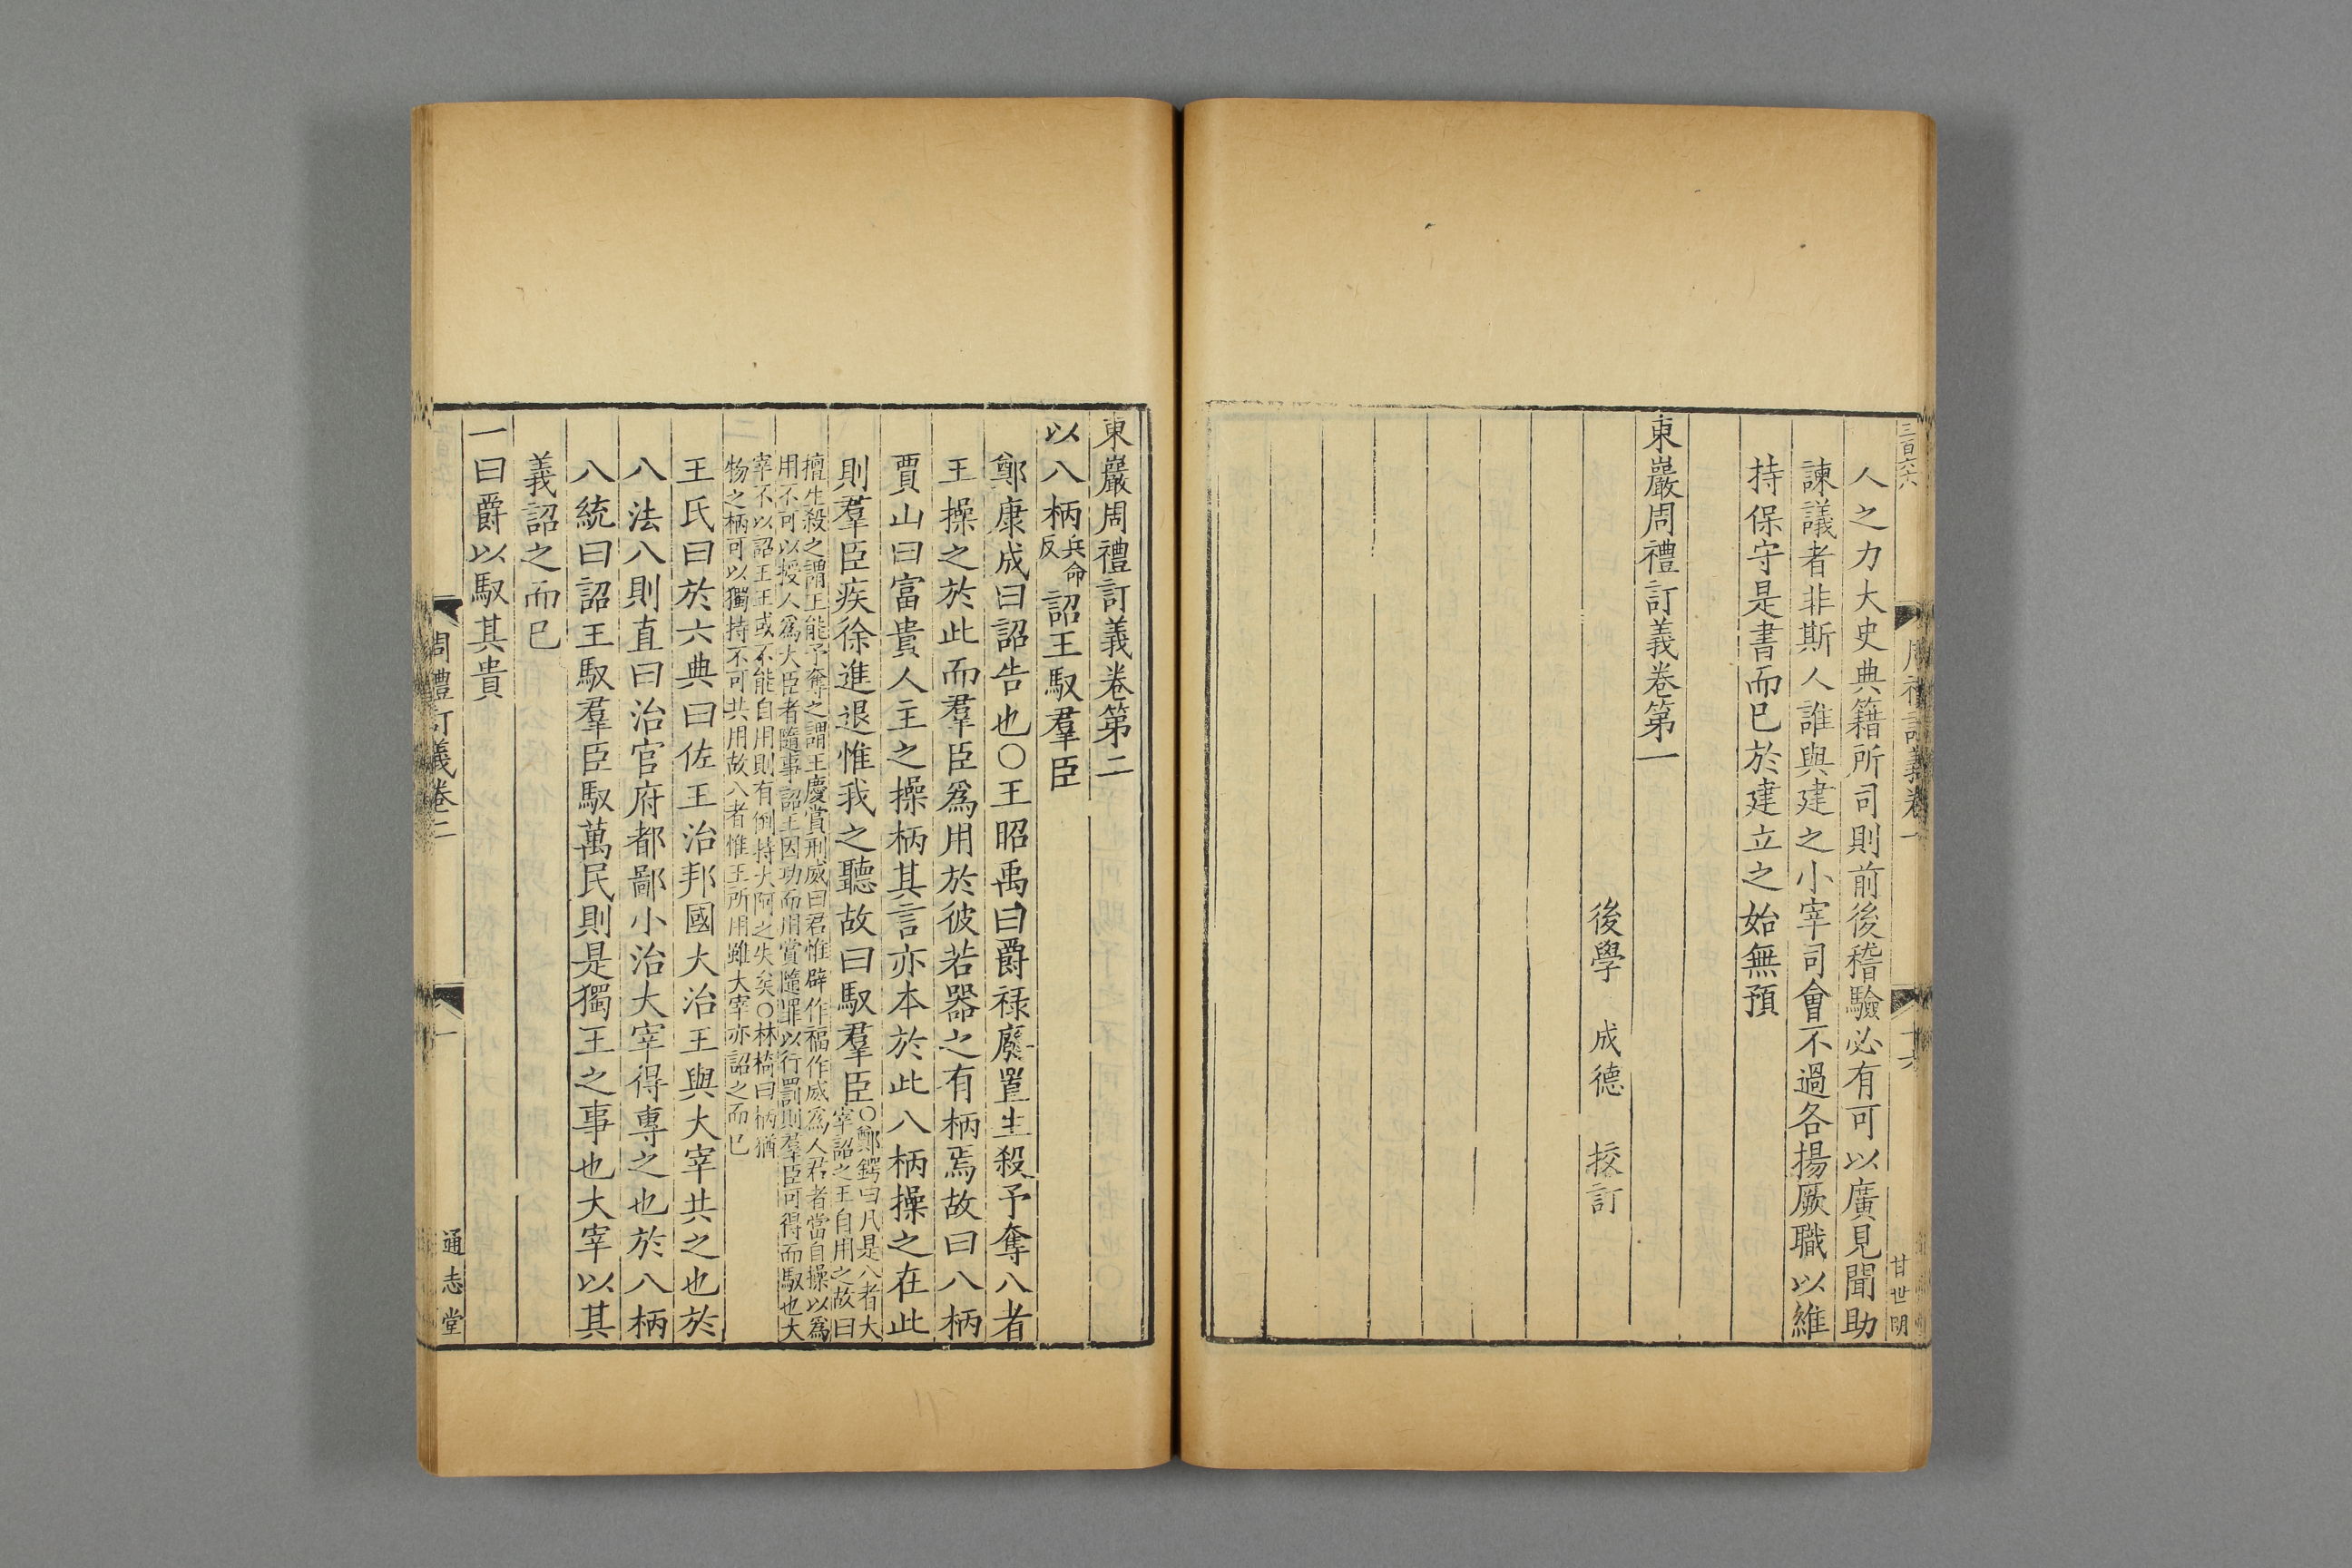 三百六六
周禮訂義卷一
甘世明
人之力大史典籍所司則前後稽驗必有可以廣見聞助
諫議者非斯人誰與建之小宰司會不過各揚厥職以維
持保守是書而已於建立之始無預
東巖周禮訂義卷第一
後學 成德 挍訂
東巖周禮訂義卷第二
以八柄兵命反詔王馭羣臣
鄭康成曰詔告也○王昭禹曰爵祿廢置生殺予奪八者
王操之於此而羣臣爲用於彼若器之有柄焉故曰八柄
賈山曰富貴人主之操柄其言亦本於此八柄操之在此
則羣臣疾徐進退惟我之聽故曰馭羣臣○鄭鍔曰凡是八者大
宰詔之王自用之故曰
擅生殺之謂王能予奪之謂王慶賞刑威曰君惟辟作福作威爲人君者當自操以爲
用不可以授人爲大臣者隨事詔王因功而用賞隨罪以行罰則羣臣可得而馭也大
宰不以詔王王或不能自用則有倒持大阿之失矣○林椅曰柄猶
物之柄可以獨持不可共用故八者惟王所用雖大宰亦詔之而已
王氏曰於六典曰佐王治邦國大治王與大宰共之也於
八法八則直曰治官府都鄙小治大宰得專之也於八柄
八統曰詔王馭羣臣馭萬民則是獨王之事也大宰以其
義詔之而已
一曰爵以馭其貴
周禮訂義卷二
一
通志堂